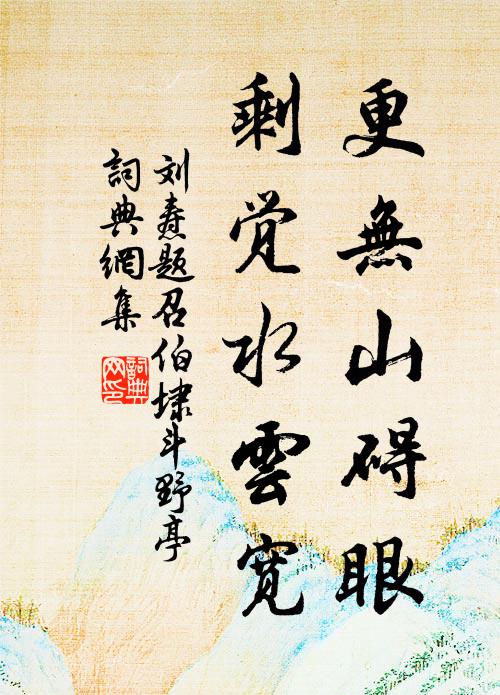 更無山碍眼
剩觉水雲宽
刘焘题召伯埭斗野亭
詞典網集
詞典
网印